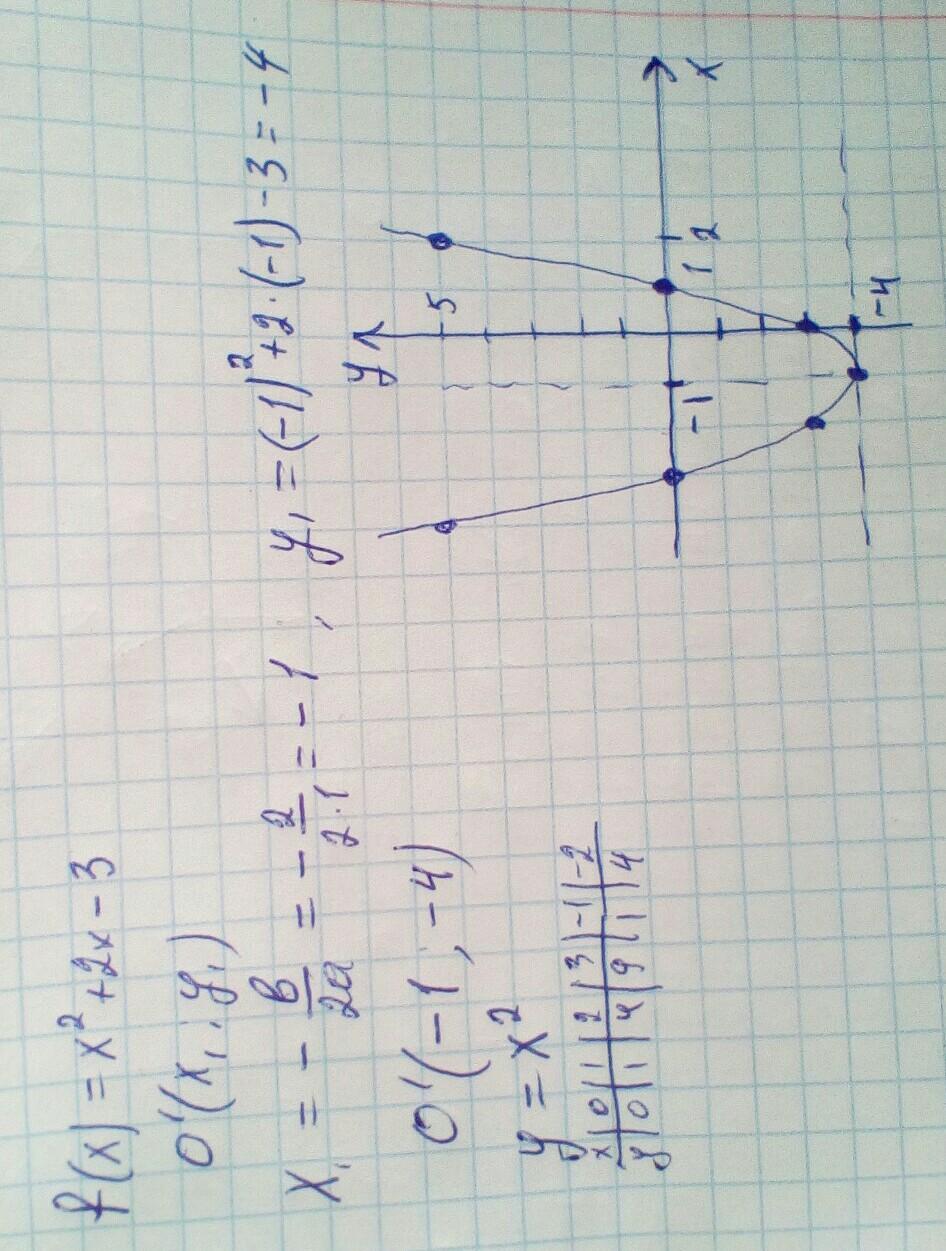 f(x) = x² + 2x - 3
O'(x₁; y₁)
x₁ = - в/2a = - 2/2·1 = - 1, y₁ = (-1)² + 2·(-1) - 3 = - 4
O'(-1; -4)
y = x²
x | 0 | 1 | 2 | 3 | -1 | -2
y | 0 | 1 | 4 | 9 | 1 | 4
y
5
-1
1
2
x
-4